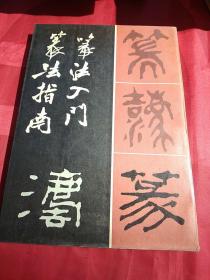 篆
篆
篆法入门
篆法指南
灋